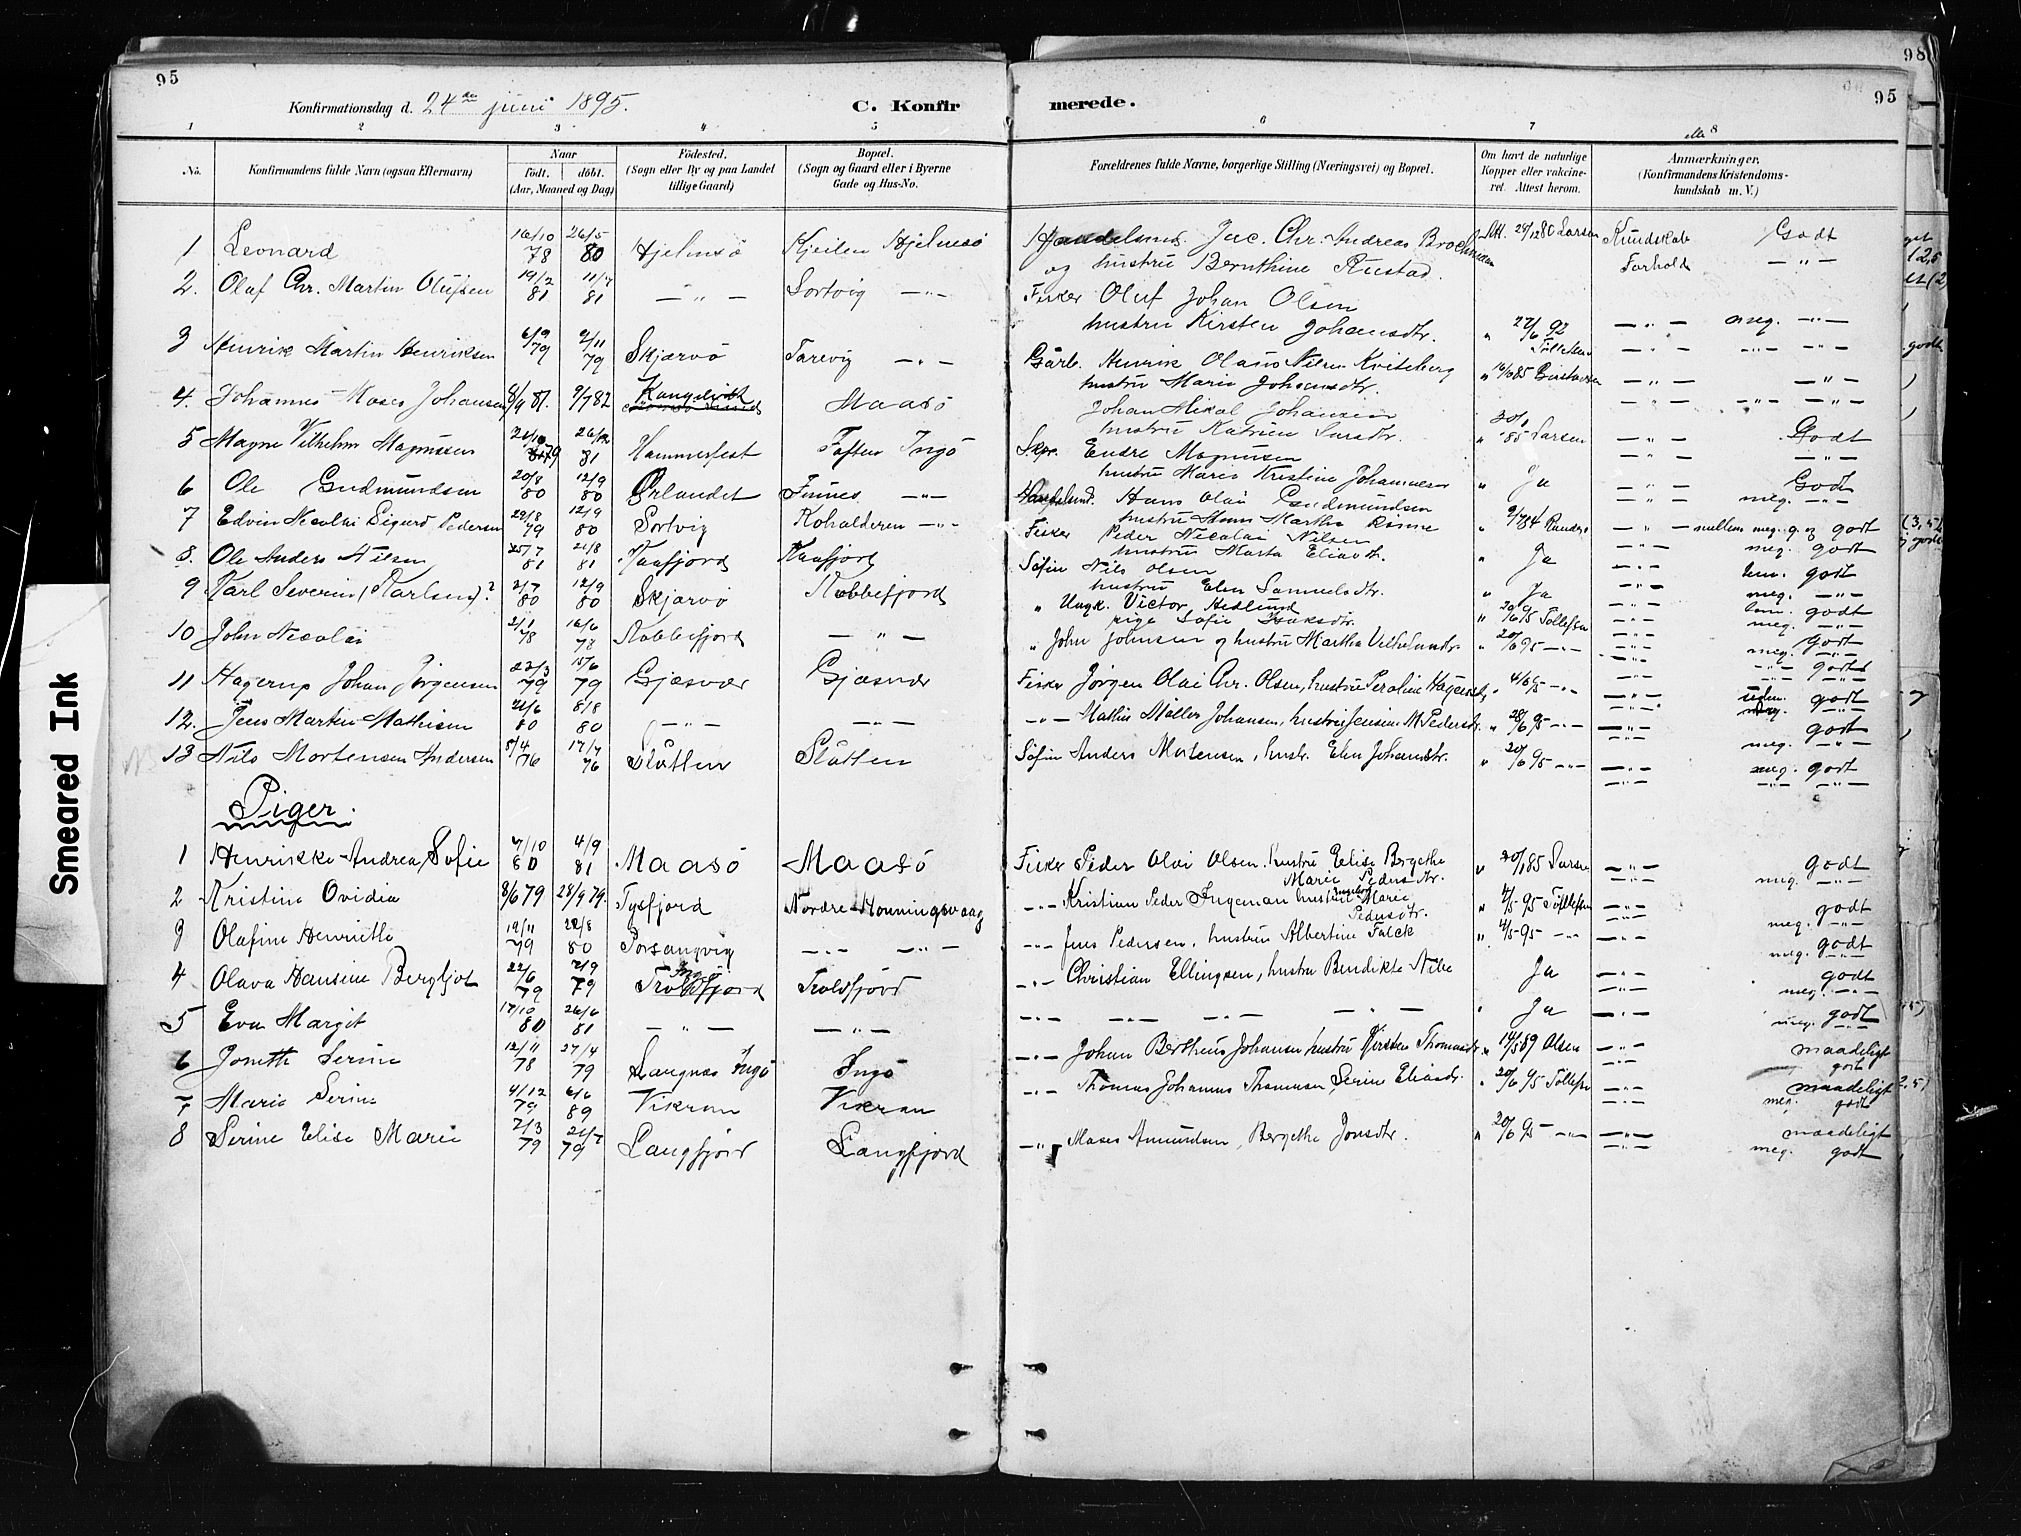 95
Konfirmationsdag d. 24de juni 1895.
C. Konfirmerede.
95
98
1 2 3 4 5 6 7 8
No.
Konfirmandens fulde Navn (ogsaa Efternavn)
Naar
født. døbt.
(Aar, Maaned og Dag)
Fødested.
(Sogn eller By og paa Landet tillige Gaard)
Bopæl.
(Sogn og Gaard eller i Byerne Gade og Hus-No.
Forældrenes fulde Navne, borgerlige Stilling (Næringsvei) og Bopæl.
Om havt de naturlige Kopper eller vakcineret. Attest herom.
Anmærkninger.
(Konfirmandens Kristendomskundskab m. V.)
1 Leonard 16/10 78 26/5 80 Hjelmsö Kjeilen Hjelmsö Handelsmd. Jac. Chr. Andreas Brochmann og hustru Bernthine Rustad. Att. 29/12 80 Larsen Kundskab Godt
Forhold —„—
2. Olaf Chr. Martin Olufsen 19/2 81 11/7 81 —„— Sortvig —„— Fisker Oluf Johan Olsen hustru Kirsten Johansdtr. „ 27/6 92 Tollefsen —„— meg. —„—
3 Henrik Martin Henriksen 6/9 79 2/11 79 Skjærvö Tarevig —„— Gårb. Henrik Olaus Nilsen Kviteberg hustru Marie Johansdtr. —„— —„—
4. Johannes Moses Johansen 8/9 81. 9/7 82 Maasö Johan Mikal Johansen hustru Katrine Larsdtr. —„— —„—
5 Magne Vilhelm Magnussen 26/12 81 Hammerfest Taften Ingö Skpr. Endre Magnusen hustru Maris Kristine Johannesen 85 Larsen —„— Godt
6 Ole Gudmundsen 20/8 80 12/9 80 Ørlandet Finnes —„— Handelsmd. Hans Olai Gudmundsen „ Ja —„— Godt
7 Edvin Nicolai Sigurd Pedersen 29/8 79 12/9 80 Sortvig Koholderen —„— Fisker Peder Nicolai Nilsen hustru Marta Eliasdtr. „ 9/7 84 —„— mellem meg. g og godt
8. Ole Anders Nilsen 25/7 81 21/8 81 Kaafjord Kaafjord Søfin Nils Olsen hustru Elen Samuelsdtr. „ Ja —„— godt
9 Karl Severin (Karlsen)? 2/7 80 12/9 80 Skjærvö Kobbefjord „ Ungk. Victor Hedlund pige Sofie Isaksdtr. „ Ja —„— godt
10 John Nicolai 2/1 78 16/6 78 Kobbefjord —„— „ John Johnsen og hustru Martha Vilhelmsdtr. „ 20/6 95 —„— —„— Godt
11 Hagerup Johan Jörgensen 23/3 79 15/6 79 Gjæsvær Gjæsvær Fisker Jørgen Olai Chr. Olsen, hustru Peroline Hagensd. „ 4/6 95 —„— —„— godt
12. Jens Martin Mathisen 21/6 80 8/8 80 —„— —„— —„— Mathis Møller Johansen, hustru Jensine M. Pedersdtr. „ 28/6 95 —„— —„— godt
13 Nils Mortensen Andersen 5/4 76 17/7 76 Slåtten Slåtten Søfin Anders Mortensen, hustr. Elen Johansdtr. „ 20/6 95 —„— —„— meg. godt
Piger.
1 Henrikke Andrea Sofie 7/10 80 4/9 81 Maasö Maasö Fisker Peder Olai Olsen. hustru Elise Bergethe Marie Pedersdtr. „ 20/1 85 Larsen —„— godt
2 Kristine Ovidia 8/6 79 28/9 79. Tysfjord Nordre Honningsvaag —„— Kristian Peder Ingeman hustru Ingeborg Marie Pedersdtr. „ 4/5 95 Tollefsen —„— godt
3 Olafine Henriette 19/11 79 22/8 80 Porsangvig —„— —„— —„— Jens Pedersen, hustru Albertine Falck „ 4/5 95 —„— —„— godt
4 Olava Hansine Bergljot 22/6 79 7/9 79 Ingö Troldfjord Troldfjord —„— Christian Ellingsen, hustru Bendikte Nibe Ja —„— godt
5 Eva Margit 17/10 80 26/6 81 —„— —„— —„— —„— „ Ja —„— meg. godt
6 Joneth Serine 12/11 78 27/4 79 Langnæs Ingö Ingö —„— Johan Bertheus Johansen hustru Kirsten Thomasdtr. „ 14/5 89 Olsen —„— maadeligt
godt
7 Marie Serine 4/12 79 6/6 89 Vikran Vikran —„— Thomas Johannes Thomasen Serine Eliasdr. „ 20/6 95 Tollefsn —„— maadeligt
meg. godt
8 Serine Elise Marie 2/3 79 21/7 79 Langfjord Langfjord —„— Moses Amundsen, Bergethe Jonsdtr. „ 20/6 95 —„— —„— maadeligt
meg. godt
Smeared Ink